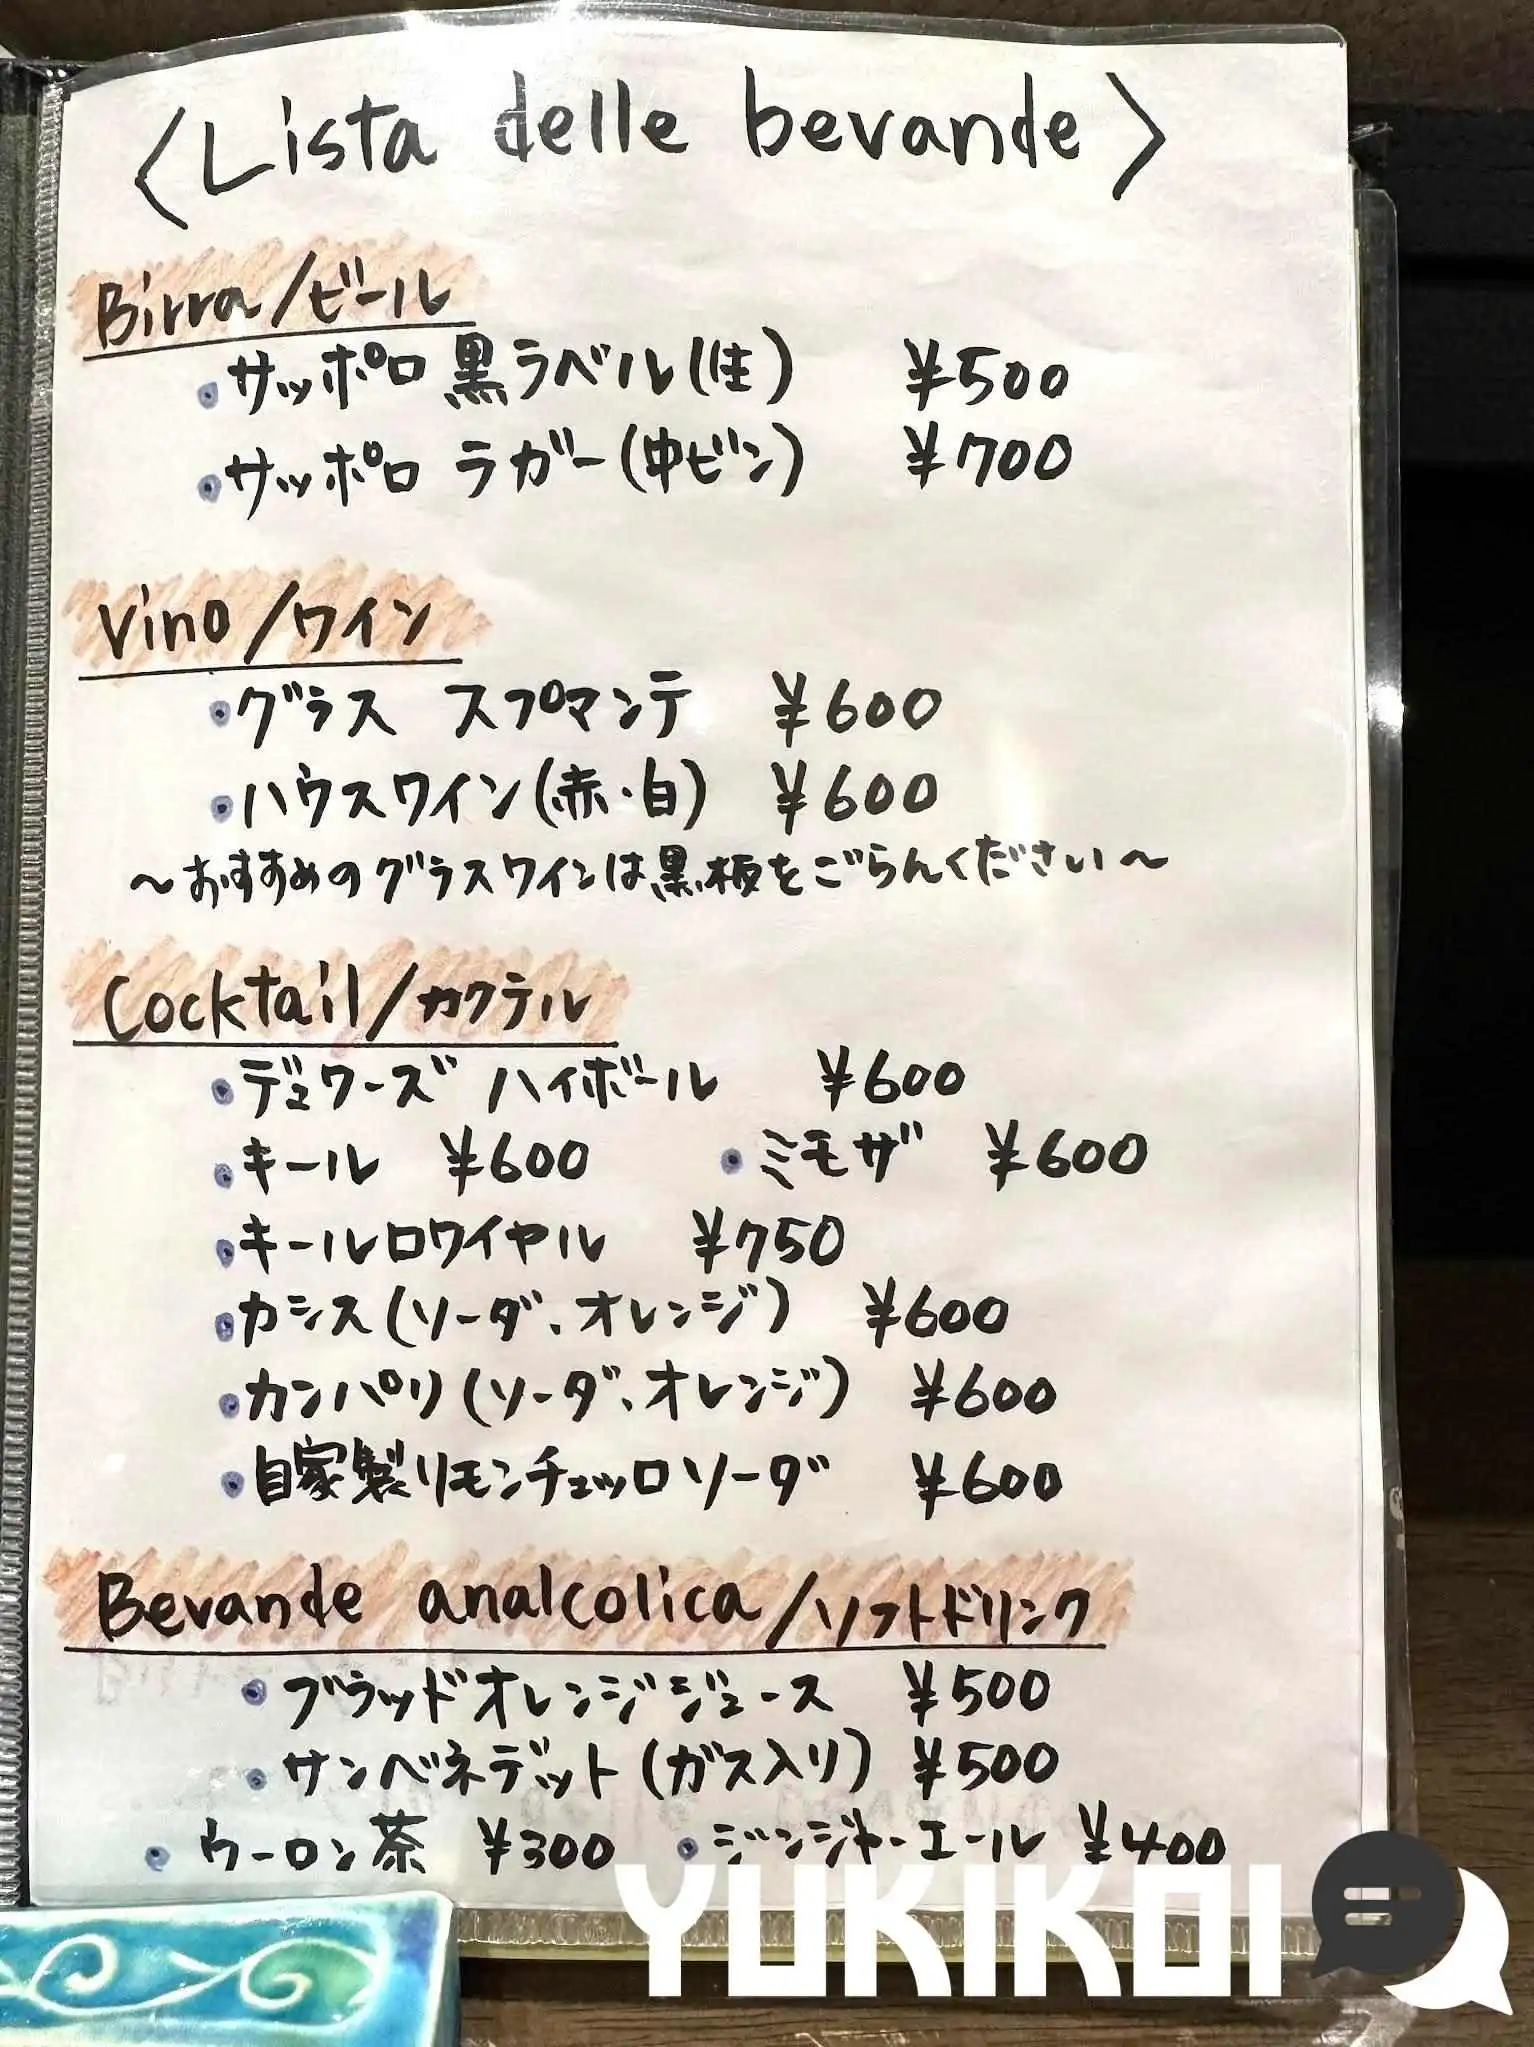 〈Lista delle bevande〉
Birra/ビール
・サッポロ 黒ラベル(生) ¥500
・サッポロ ラガー(中ビン) ¥700
Vino/ワイン
・グラス スプマンテ ¥600
・ハウスワイン(赤・白) ¥600
～おすすめのグラスワインは黒板をごらんください～
Cocktail/カクテル
・デュワーズ ハイボール ¥600
・キール ¥600 ・ミモザ ¥600
・キールロワイヤル ¥750
・カシス(ソーダ、オレンジ) ¥600
・カンパリ(ソーダ、オレンジ) ¥600
・自家製リモンチェッロソーダ ¥600
Bevande analcolica/ソフトドリンク
・ブラッドオレンジジュース ¥500
・サンベネデット(ガス入り) ¥500
・ウーロン茶 ¥300 ・ジンジャーエール ¥400
YUKIKOI